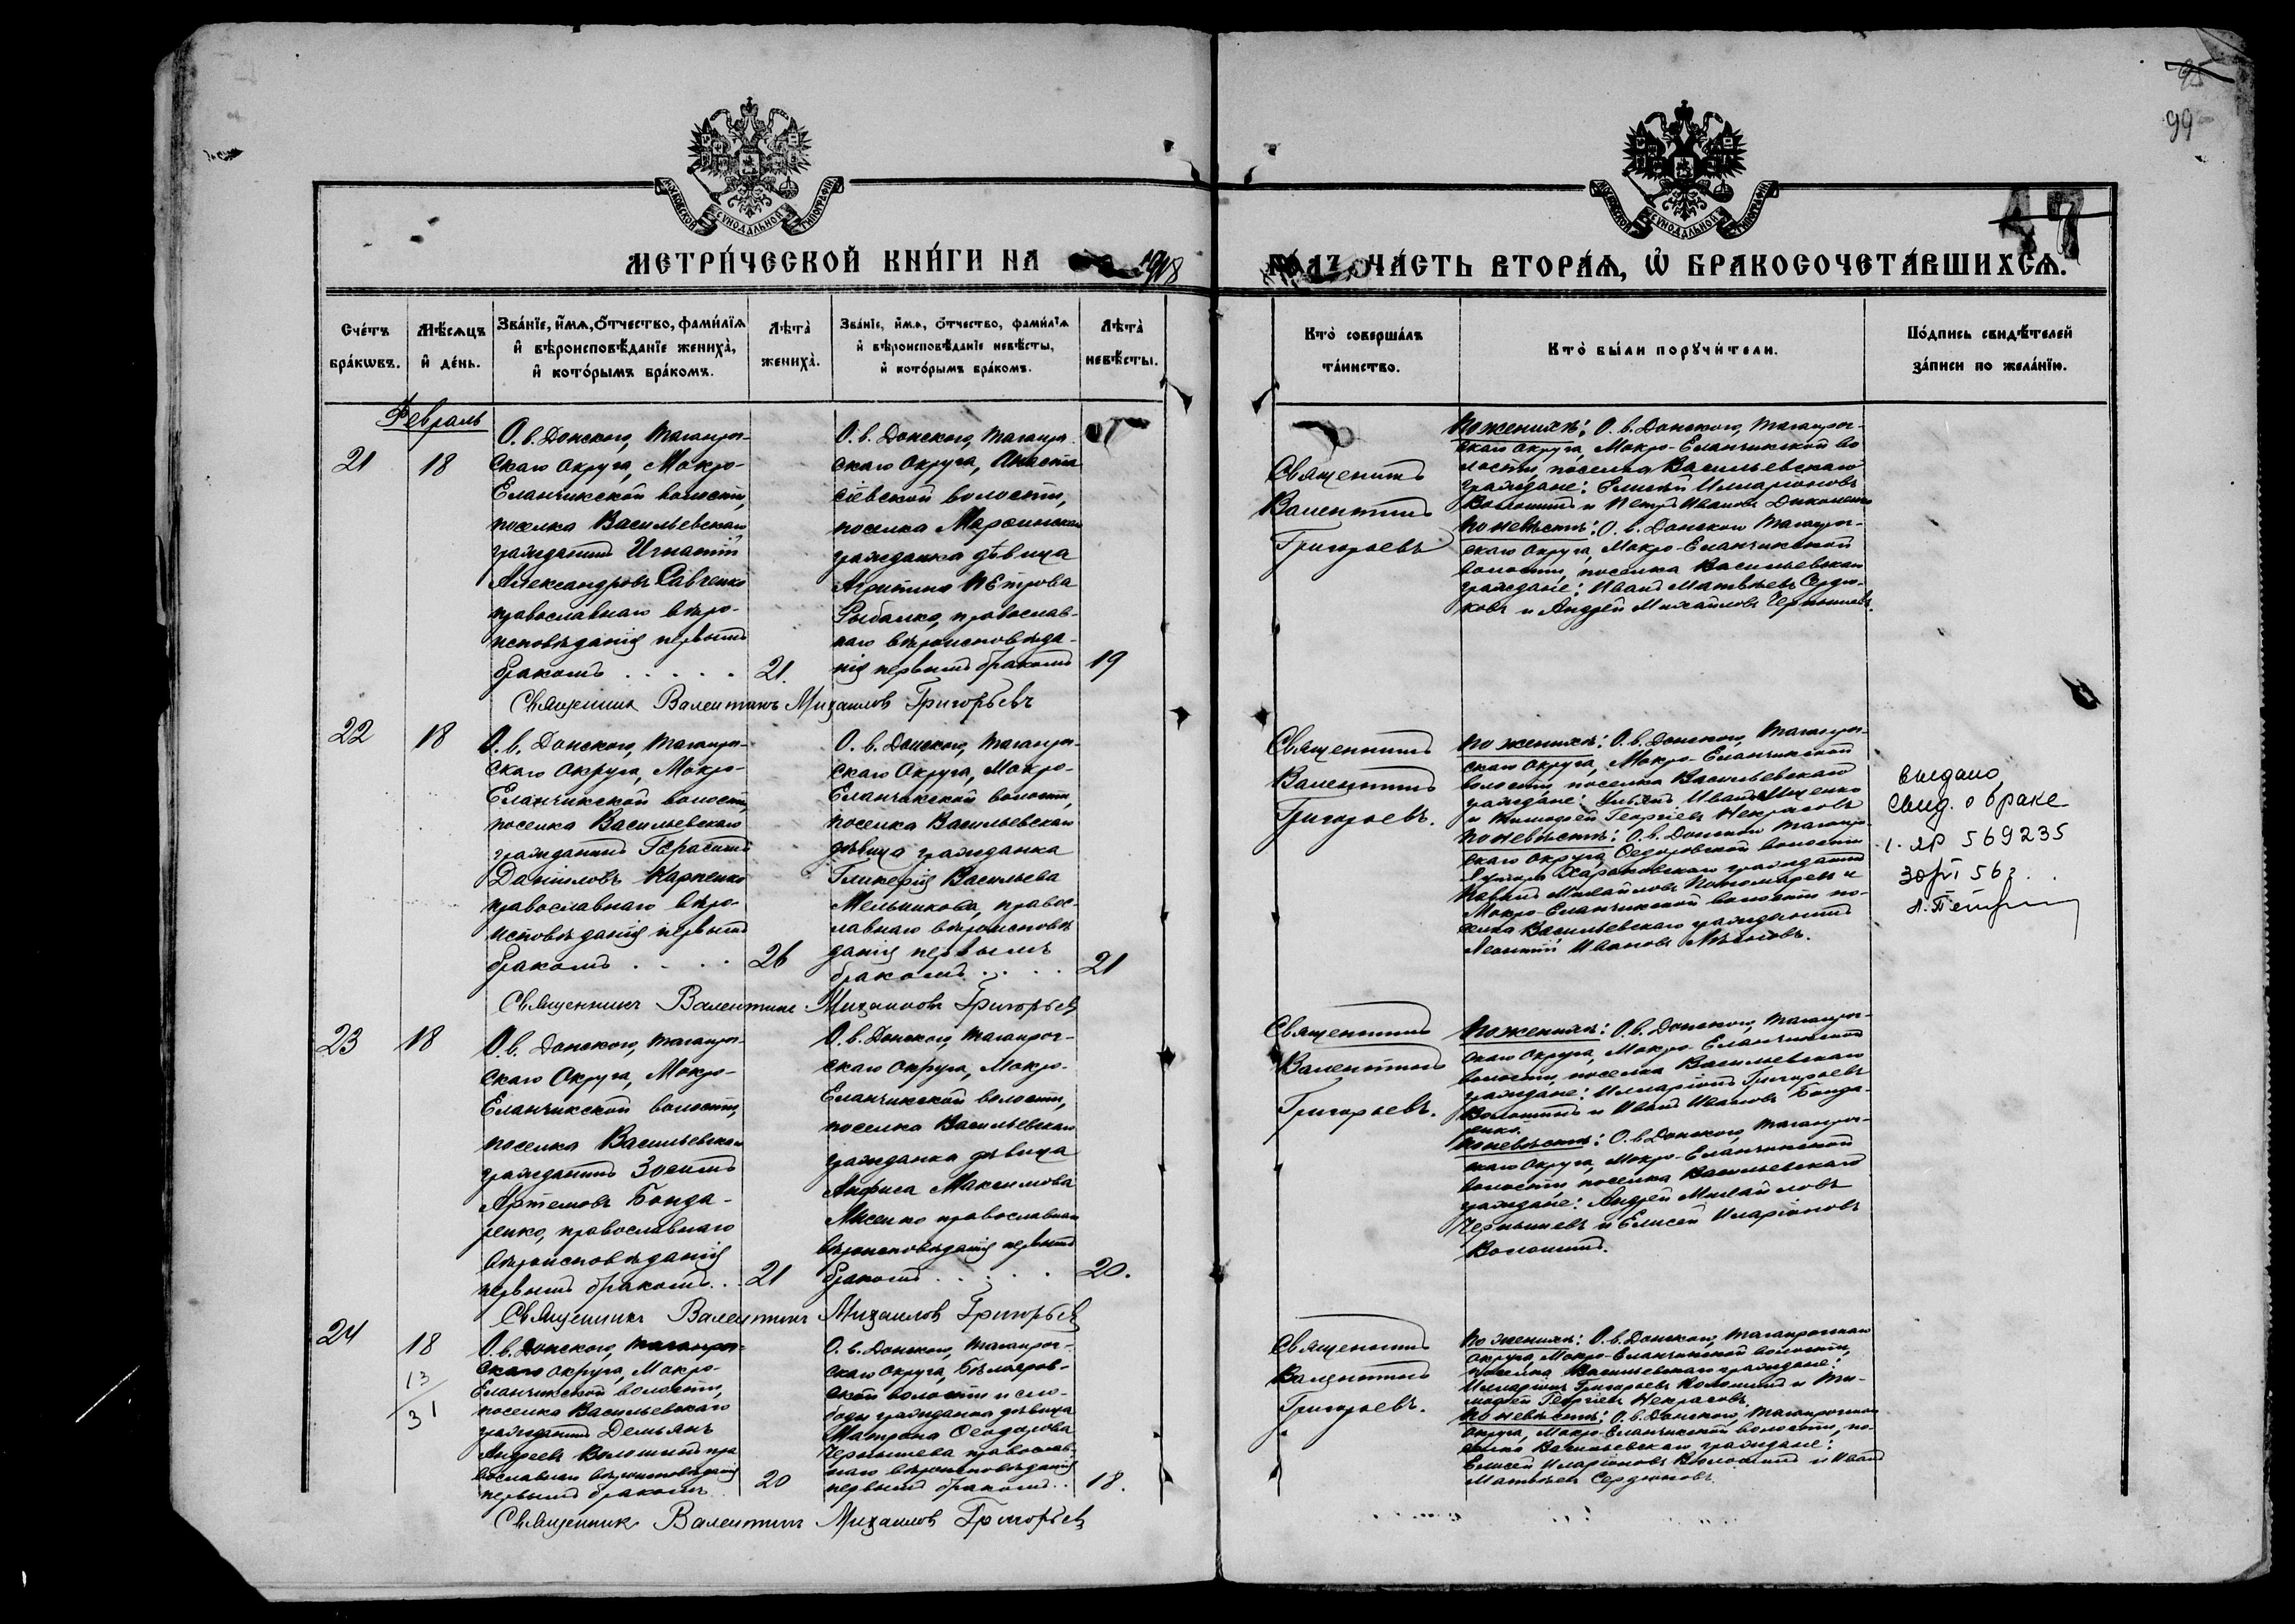 99
47
МОСКОВСКОЙ СѴНОДАЛЬНОЙ ТИПОГРАФІИ
МОСКОВСКОЙ СѴНОДАЛЬНОЙ ТИПОГРАФІИ
МЕТРИ́ЧЕСКОЙ КНИ́ГИ НА 1918
ГО́ДЪ, ЧА́СТЬ ВТОРА́Ѧ, Ѽ БРАКОСОЧЕТА́ВШИХСѦ.
Сче́тъ бра́кѡвъ.
Мѣ́сѧцъ и҆ де́нь.
Зва́нїе, и҆́мѧ, ѻ҆́тчество, фами́лїѧ и҆ вѣроисповѣ́данїе жениха̀, и҆ кото́рымъ бра́комъ.
Лѣта̀ жениха̀.
Зва́нїе, и҆́мѧ, ѻ҆́тчество, фами́лїѧ и҆ вѣроисповѣ́данїе невѣ́сты, и҆ кото́рымъ бра́комъ.
Лѣта̀ невѣ́сты.
Кто̀ соверша́лъ та́инство.
Кто̀ бы́ли порꙋчи́тели.
По́дпись свидѣ́телей за́писи по жела́нїю.
Февраль
21
18
О. в. Донского, Таганрог-
скаго Округа, Мокро-
Еланчикской волости,
поселка Васильевскаго
гражданинъ Игнатій
Александровъ Савченко
православнаго вѣро-
исповѣданія первымъ
бракомъ . . . . .
21.
О. в. Донского, Таганрог-
скаго Округа, Анаста
сіевской волости,
поселка Марфинскаго
гражданка дѣвица
Агрипина Петрова
Рыбалко, православ-
наго вѣроисповѣда-
нія первымъ бракомъ
19
Священникъ
Валентинъ
Григорьевъ
По женихѣ: О. в. Донского, Таганрог-
скаго Округа, Мокро-Еланчикской во
лости, поселка Васильевскаго
граждане: Елисѣй Илларіоновъ
Волошинъ и Петръ Ивановъ Диконенко
По невѣстѣ: О. в. Донского Таганрог-
скаго Округа, Мокро-Еланчикской
волости, поселка Васильевскаго
граждане: Иванъ Матвѣевъ Сердю-
ковъ и Андрей Михайловъ Чернышевъ.
Священникъ Валентинъ Михаилов Григорьевъ
22
18
О. в. Донского, Таганрог-
скаго Округа, Мокро-
Еланчикской волости,
поселка Васильевскаго
гражданинъ Герасимъ
Даніиловъ Карпенко
православнаго вѣро-
исповѣданія первымъ
бракомъ . . . .
26
О. в. Донского, Таганрог-
скаго Округа, Мокро-
Еланчикской волости,
поселка Васильевскаго
дѣвица гражданка
Гликерія Васильева
Мельникова, правос-
лавнаго вѣроисповѣ
данія первымъ
бракомъ . . . .
21
Священникъ
Валентинъ
Григорьевъ.
По женихѣ: О. в. Донского, Таганрог-
скаго Округа, Мокро-Еланчикской
волости, поселка Васильевскаго
граждане: Ульянъ Ивановъ
и Тимофей Георгіевъ Некрасовъ
По невѣстѣ: О. в. Донского Таганрог-
скаго Округа, Федоровской волости
хутора гражданинъ
Павелъ Михайловъ Пономаревъ и
Мокро-Еланчикской волости по-
селка Васильевскаго гражданинъ
Леонтій Ивановъ
выдано
свид. о браке
1. ЯР 569235
30/VI 56г.
Священникъ Валентинъ Михаилов Григорьев
23
18
О. в. Донского, Таганрог-
скаго Округа, Мокро-
Еланчикской волости,
поселка Васильевскаго
гражданинъ Зосимъ
Артемовъ Бонда-
ренко, православнаго
вѣроисповѣданія
первымъ бракомъ. .
21
О. в. Донского, Таганрог-
скаго Округа, Мокро-
Еланчикской волости,
поселка Васильевскаго
гражданка дѣвица
Анфиса Максимова
Лысенко православнаго
вѣроисповѣданія первымъ
бракомъ . . . . .
20.
Священникъ
Валентинъ
Григорьевъ.
По женихѣ: О. в. Донского, Таганрог-
скаго Округа, Мокро-Еланчикской
волости, поселка Васильевскаго
граждане: Илларіонъ Григорьевъ
Волошинъ и Иванъ Ивановъ Бонда-
ренко.
По невѣстѣ: О. в. Донского, Таганрог-
скаго Округа, Мокро-Еланчикской
волости поселка Васильевскаго
граждане: Андрей Михайловъ
Чернышевъ и Елисей Иларіоновъ
Волошинъ.
Священникъ Валентинъ Михаилов Григорьев
24
18
13/31
О. в. Донского, Таганрог-
скаго Округа, Мокро-
Еланчикской волости,
поселка Васильевскаго
гражданинъ Демьянъ
Андреевъ Волошинъ пра
вославнаго вѣроисповѣданія
первымъ бракомъ
20
О. в. Донского, Таганрог-
скаго Округа, Бѣлояров-
ской волости и сло-
боды гражданка дѣвица
Матрона Ѳеодорова
Чернышева православ-
наго вѣроисповѣданія
первымъ бракомъ. .
18.
Священникъ
Валентинъ
Григорьевъ.
По женихѣ: О. в. Донского, Таганрогскаго
Округа, Мокро-Еланчикской волости,
поселка Васильевскаго граждане:
Илларіонъ Григорьевъ Волошинъ и Ти-
мофей Георгіевъ Некрасовъ.
По невѣстѣ: О. в. Донского, Таганрогскаго
Округа, Мокро-Еланчикской волости, по-
селка Васильевскаго граждане:
Елисей Иларіоновъ Волошинъ и Иванъ
Матвѣевъ Сердюковъ.
Священник Валентинъ Михаилов Григорьев